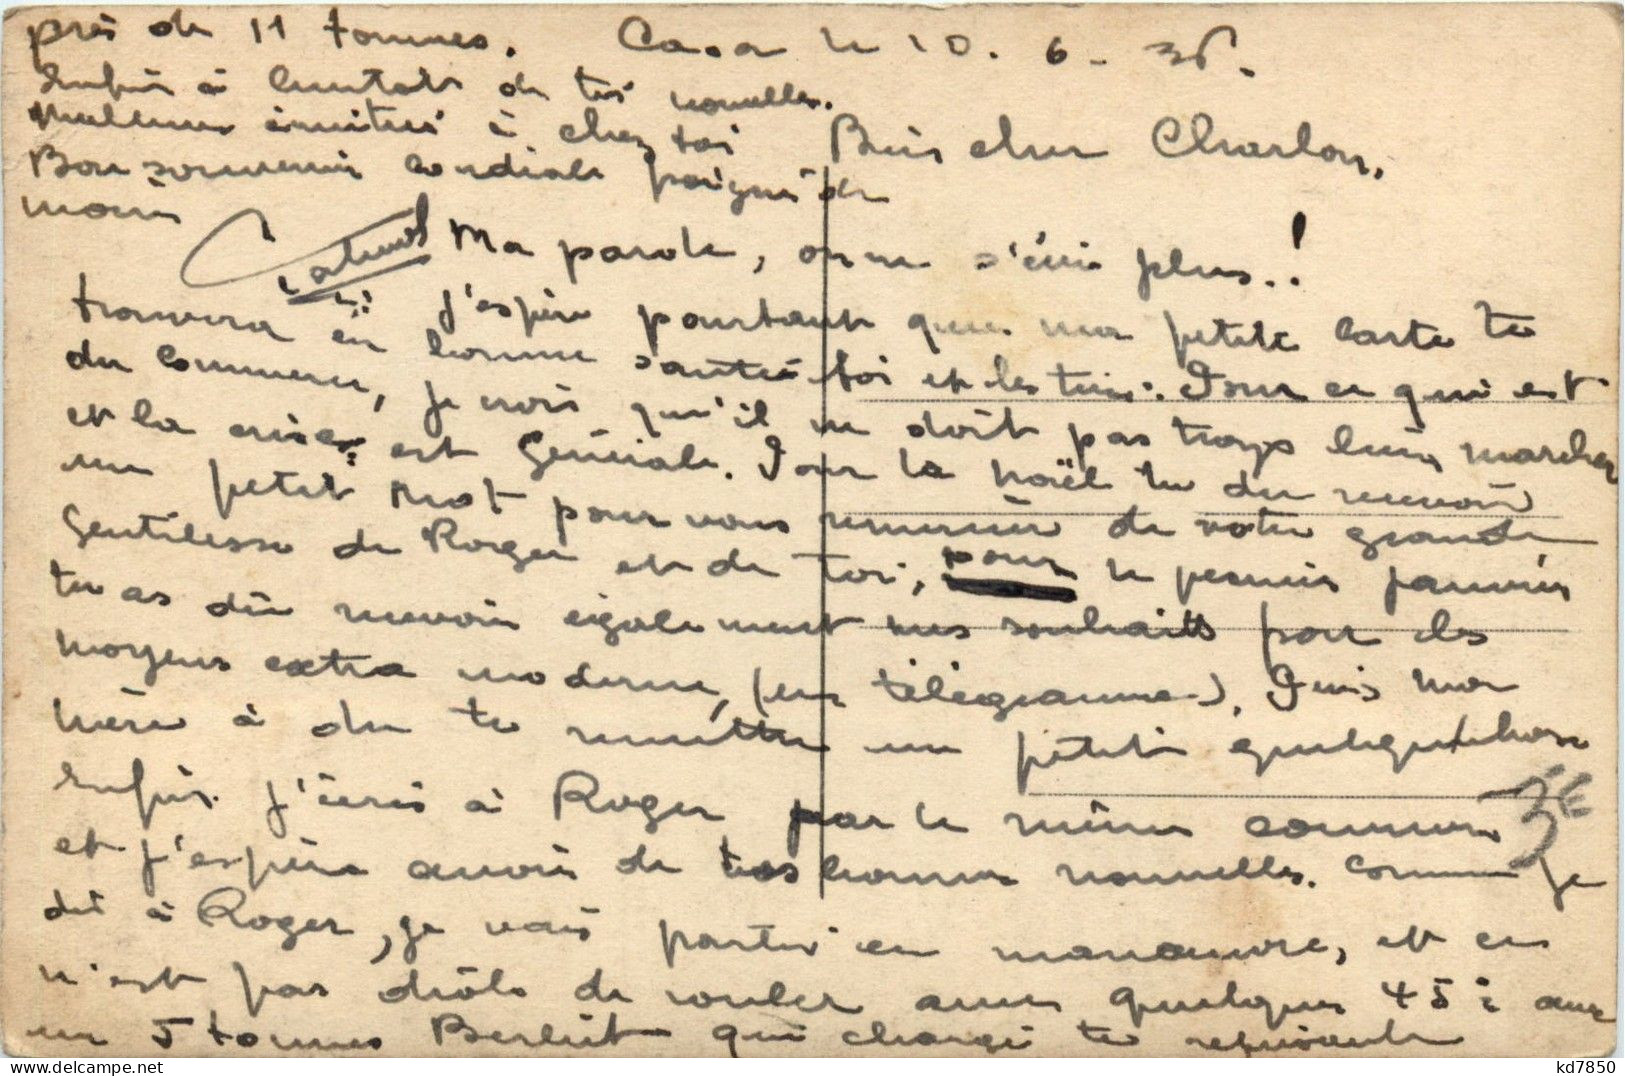 Casa le 10. 6. 36.
Bien cher Charlon,
Ma parole, on ne s'écri plus..!
J'espère pourtant que ma petite carte te
trouvera en bonne santé toi et les tiens. Pour ce qui est
du commerce, je crois qu'il ne doit pas trops bien marcher
et la crise est Génerale. Pour la Noël tu du recevoir
un petit mot pour vous remercier de votre grande
Gentilesse de Roger et de toi, pour le permis
tu as dû recevoir également mes souhaits par des
moyens extra moderne, (un télégramme). Puis ma
mère à du te remettre un petit quelquechose
enfin. J'écris à Roger par le même courrier
et j'espère avoir de tes bonnes nouvelles. Comme je
dit à Roger, je vais partir en manoeuvre, et ce
n'est pas drôle de rouler avec quelques 45° avec
un 5 tonnes Berliet qui chargé te
près de 11 tonnes.
Enfin à bientot de tes nouvelles.
Meilleures amitiés à chez toi
Bon souvenir cordiale poignée de
main
3E
kd7850